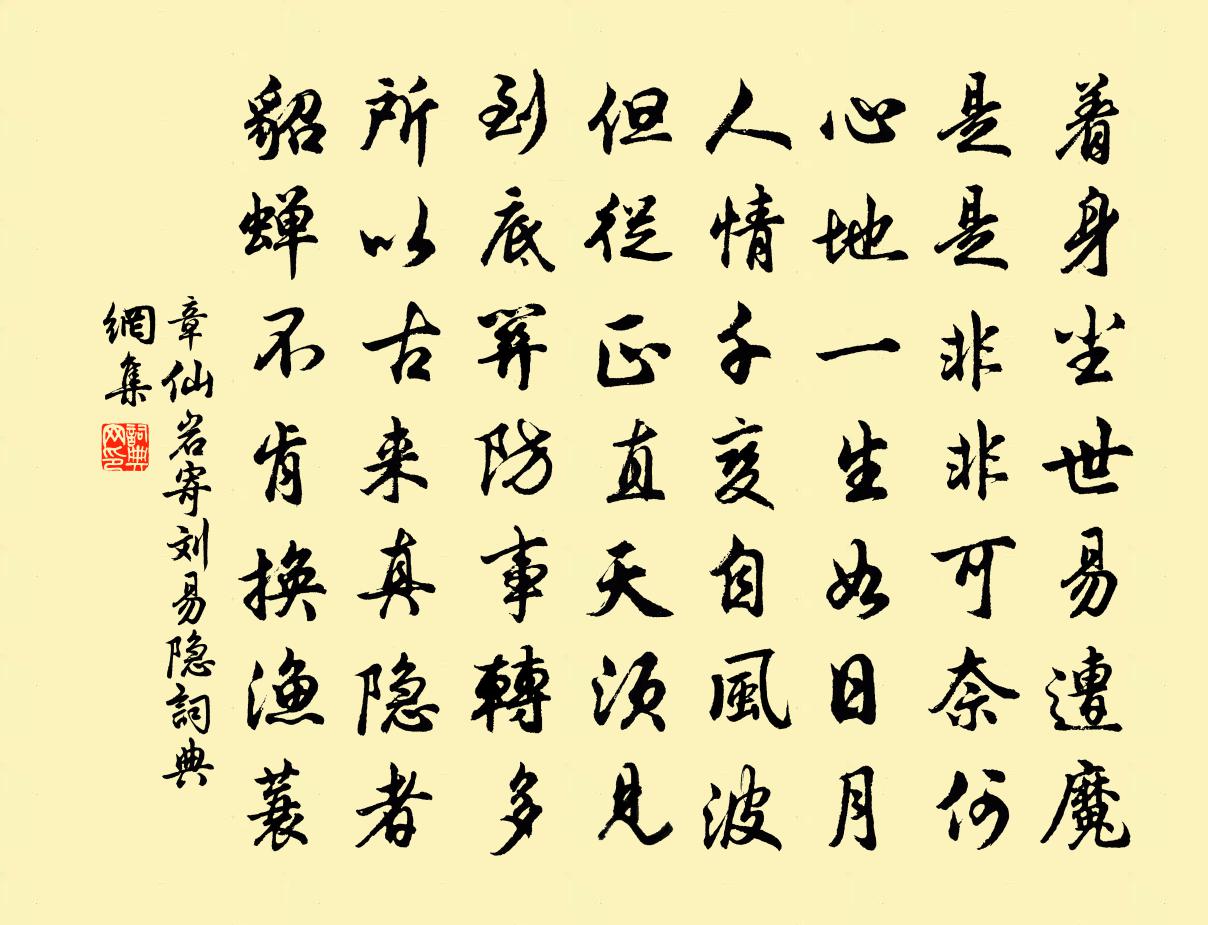 着身尘世易遭魔
是是非非可奈何
心地一生如日月
人情千变自風波
但從正直天须見
到底算防事轉多
所以古来真隐者
貂蝉不肯换漁蓑
章仙岩寄刘易隐詞典
網集
詞典網印